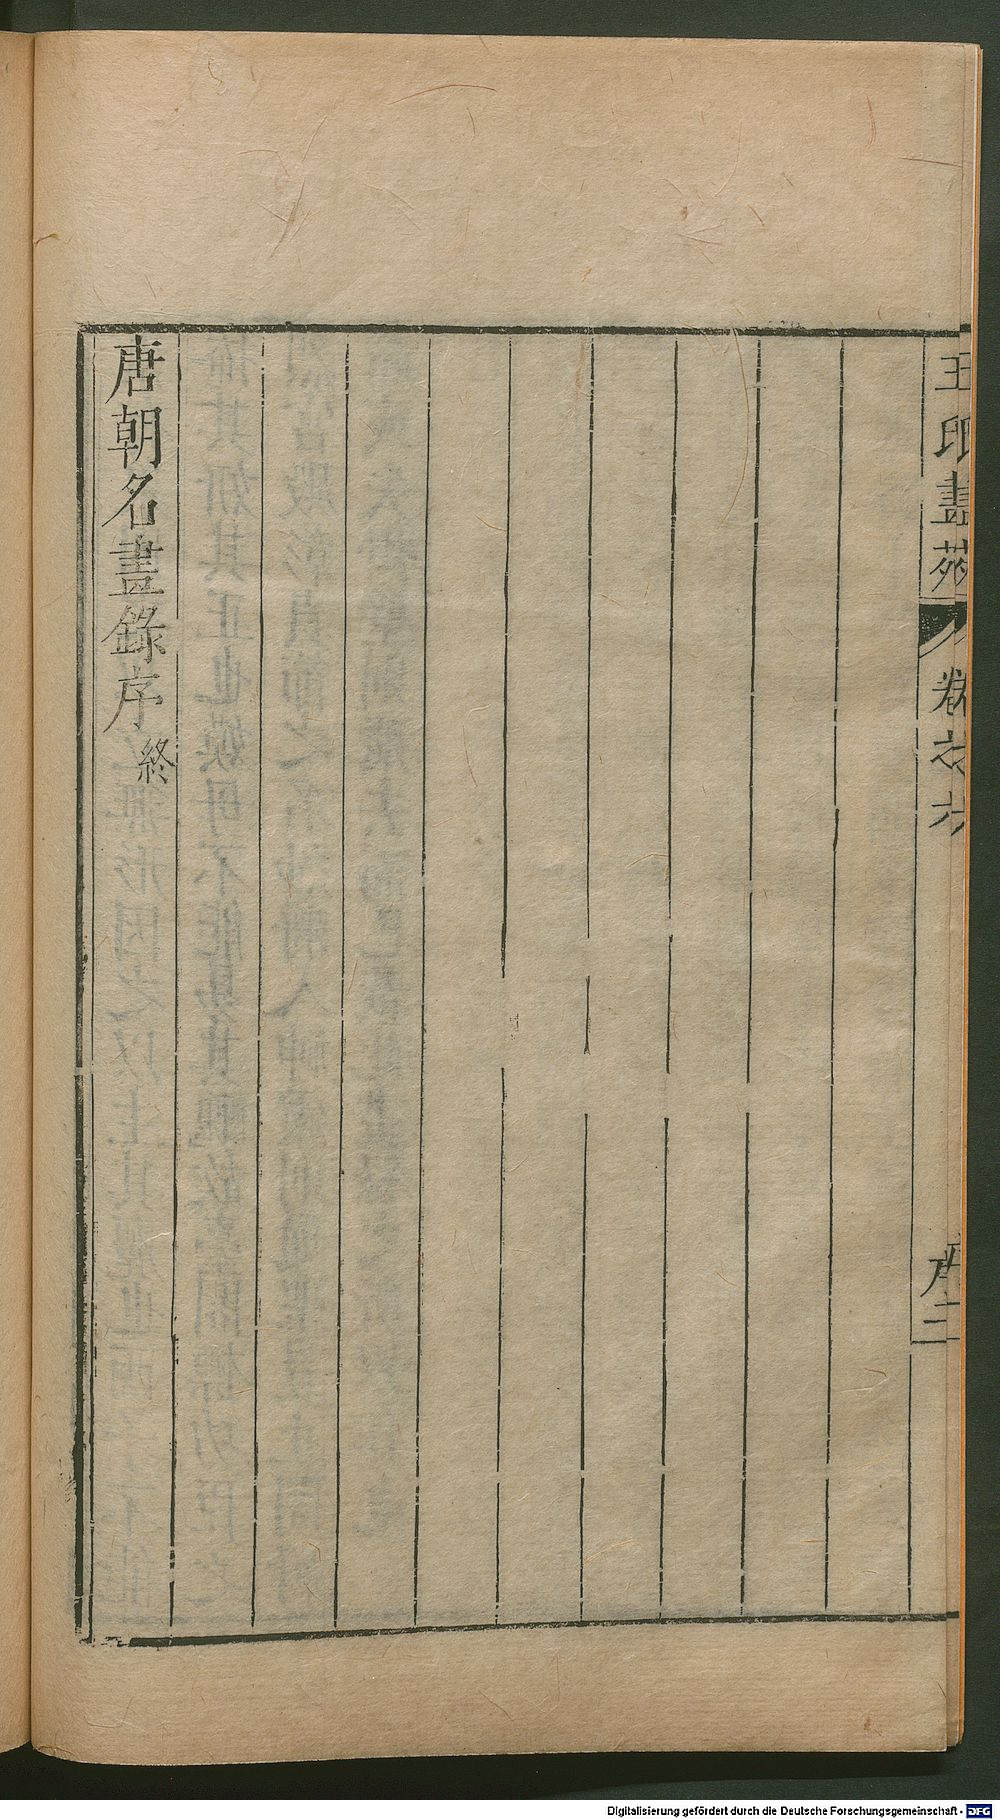 王氏畫苑 卷之六 序二
唐朝名畫錄序 終
Digitalisierung gefördert durch die Deutsche Forschungsgemeinschaft - DFG